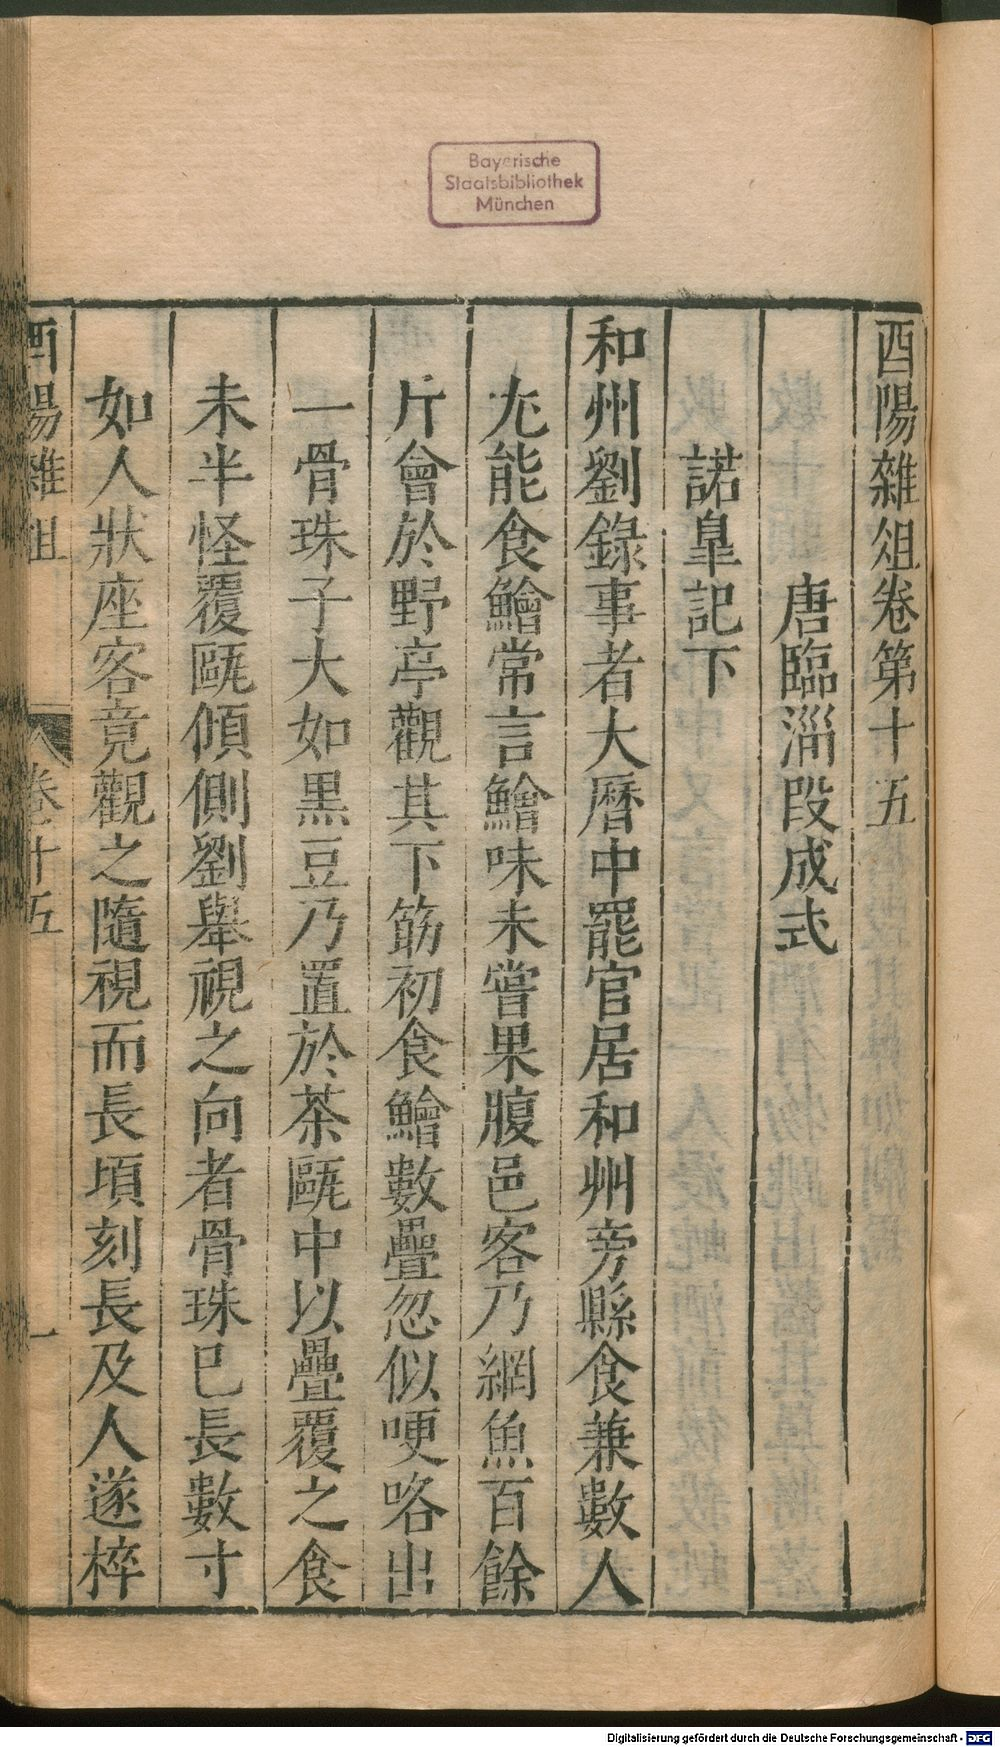 Bayerische
Staatsbibliothek
München
酉陽雜俎卷第十五
唐臨淄段成式
諾臯記下
和州劉錄事者大曆中罷官居和州旁縣食兼數人
尤能食鱠常言鱠味未嘗果腹邑客乃網魚百餘
斤會於野亭觀其下筯初食鱠數疊忽似哽咯出
一骨珠子大如黒豆乃置於茶甌中以疊覆之食
未半怪覆甌傾側劉舉視之向者骨珠已長數寸
如人狀座客竟觀之隨視而長頃刻長及人遂捽
酉陽雜俎 卷十五 一
Digitalisierung gefördert durch die Deutsche Forschungsgemeinschaft - DFG